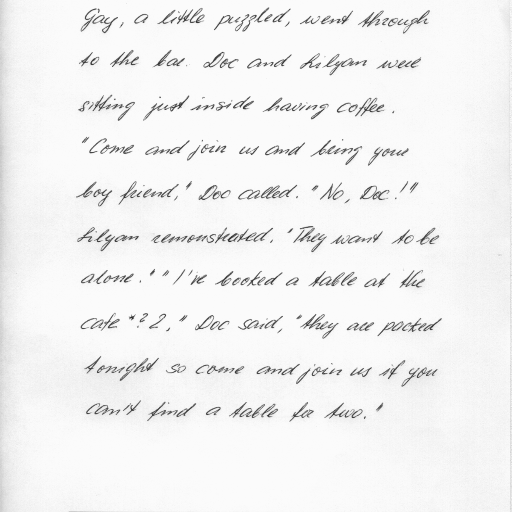 Gay, a little puzzled, went through
to the bar. Doc and Lilyan were
sitting just inside having coffee.
"Come and join us and being your
boy friend," Doc called. "No, Doc!"
Lilyan remonstrated. "They want to be
alone." "I've booked a table at the
cafe *?2," Doc said, "they are packed
tonight so come and join us if you
can't find a table for two."